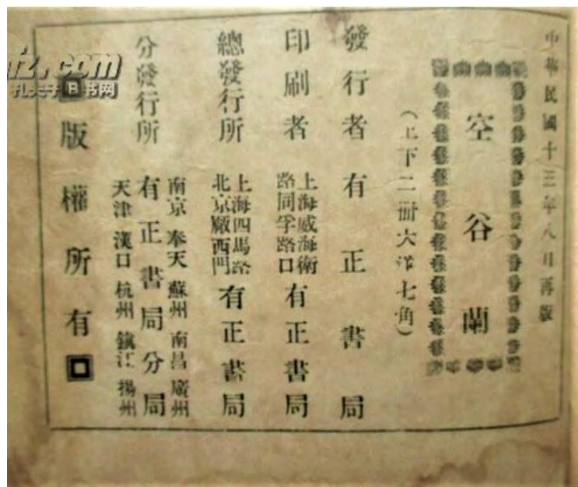 中華民國十三年八月再版
空谷蘭
(上下二冊大洋七角)
發行者 有正書局
印刷者 上海威海衛路同孚路口 有正書局
總發行所 上海四馬路 北京廠西門 有正書局
分發行所 南京 奉天 蘇州 南昌 廣州 天津 漢口 杭州 鎮江 揚州 有正書局分局
版權所有
.com
孔夫子旧书网